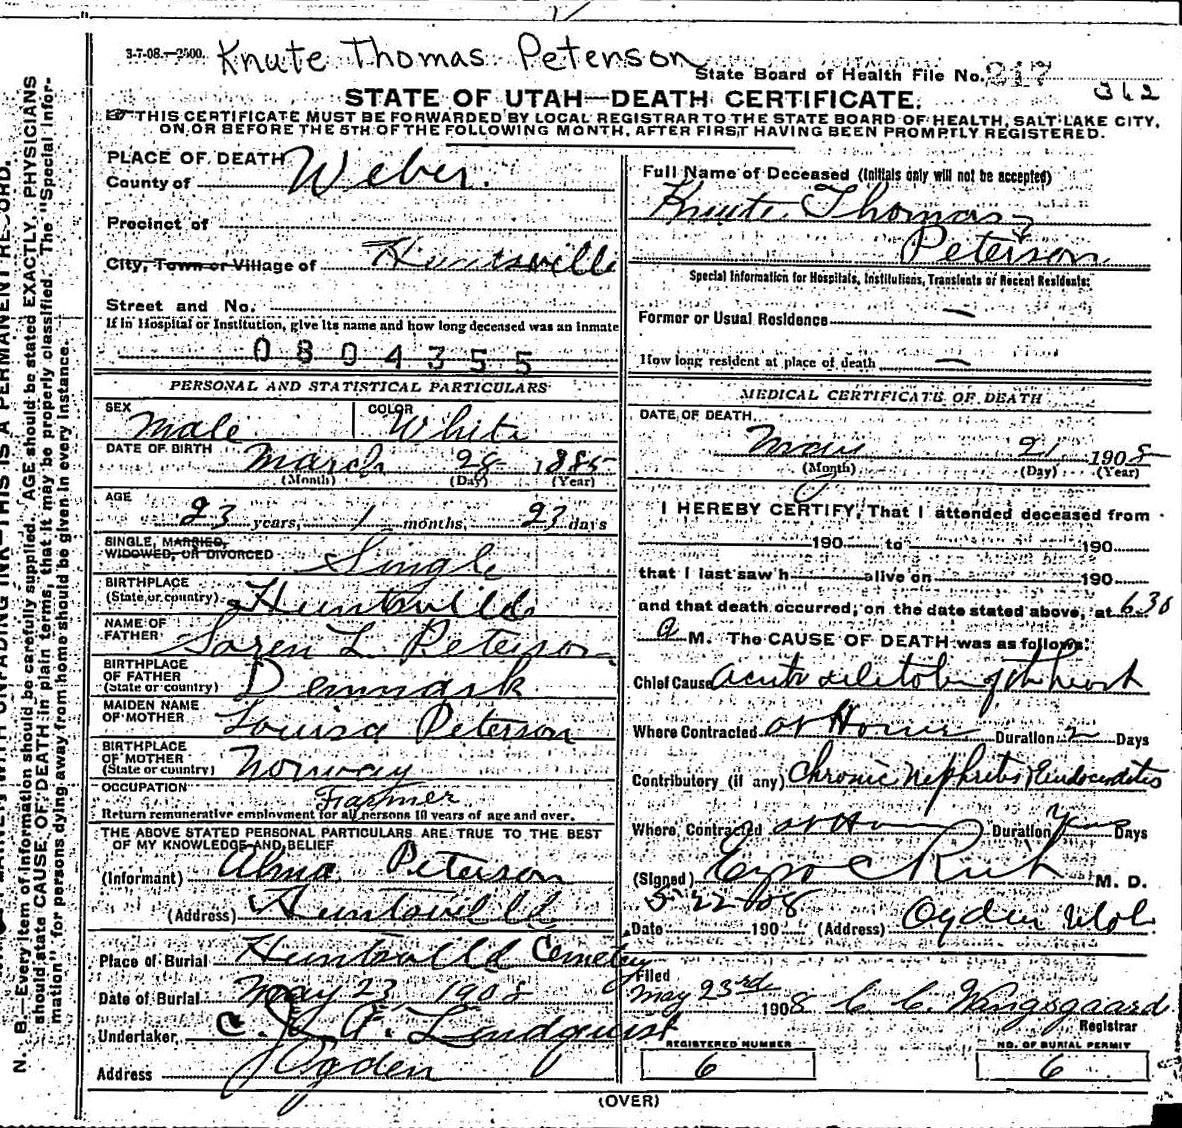 3-7-08.—2500. Knute Thomas Peterson
State Board of Health File No. 217
362
STATE OF UTAH—DEATH CERTIFICATE.
THIS CERTIFICATE MUST BE FORWARDED BY LOCAL REGISTRAR TO THE STATE BOARD OF HEALTH, SALT LAKE CITY,
ON OR BEFORE THE 5TH OF THE FOLLOWING MONTH, AFTER FIRST HAVING BEEN PROMPTLY REGISTERED.
PLACE OF DEATH
County of Weber.
Precinct of
City, Town or Village of Huntsville
Street and No.
If in Hospital or Institution, give its name and how long deceased was an inmate
0804355
PERSONAL AND STATISTICAL PARTICULARS
SEX Male COLOR White
DATE OF BIRTH March 28 1885
(Month) (Day) (Year)
AGE
23 years, 1 months, 23 days
SINGLE, MARRIED,
WIDOWED, OR DIVORCED Single
BIRTHPLACE
(State or country) Huntsville
NAME OF
FATHER Soren L Peterson
BIRTHPLACE
OF FATHER
(State or country) Denmark
MAIDEN NAME
OF MOTHER Louisa Peterson
BIRTHPLACE
OF MOTHER
(State or country) Norway
OCCUPATION Farmer
Return remunerative employment for all persons 10 years of age and over.
THE ABOVE STATED PERSONAL PARTICULARS ARE TRUE TO THE BEST
OF MY KNOWLEDGE AND BELIEF
(Informant) Alma Peterson
(Address) Huntsville
Place of Burial Huntsville Cemetery
Date of Burial May 23 1908
Undertaker, C. J. A. Lindquist
Address Ogden
Full Name of Deceased (Initials only will not be accepted)
Knute Thomas
Peterson
Special Information for Hospitals, Institutions, Transients or Recent Residents:
Former or Usual Residence —
How long resident at place of death —
MEDICAL CERTIFICATE OF DEATH
DATE OF DEATH
May 21 1908
(Month) (Day) (Year)
I HEREBY CERTIFY, That I attended deceased from
190 to 190
that I last saw h alive on 190
and that death occurred, on the date stated above, at 6.30
a M. The CAUSE OF DEATH was as follows:
Chief Cause Acute dilitation of the heart
Where Contracted at Home Duration 2 Days
Contributory (if any) Chronic Nephritis, Endocarditis
Where Contracted at Home Duration Years Days
(Signed) Ezra C Rich M. D.
Date 5-22-08 190 (Address) Ogden Utah.
Filed
May 23rd 1908 C C Wangsgaard
Registrar
REGISTERED NUMBER
6
NO. OF BURIAL PERMIT
6
(OVER)
N. B.—Every item of information should be carefully supplied. AGE should be stated EXACTLY. PHYSICIANS
should state CAUSE OF DEATH in plain terms, that it may be properly classified. The "Special Infor-
mation" for persons dying away from home should be given in every instance.